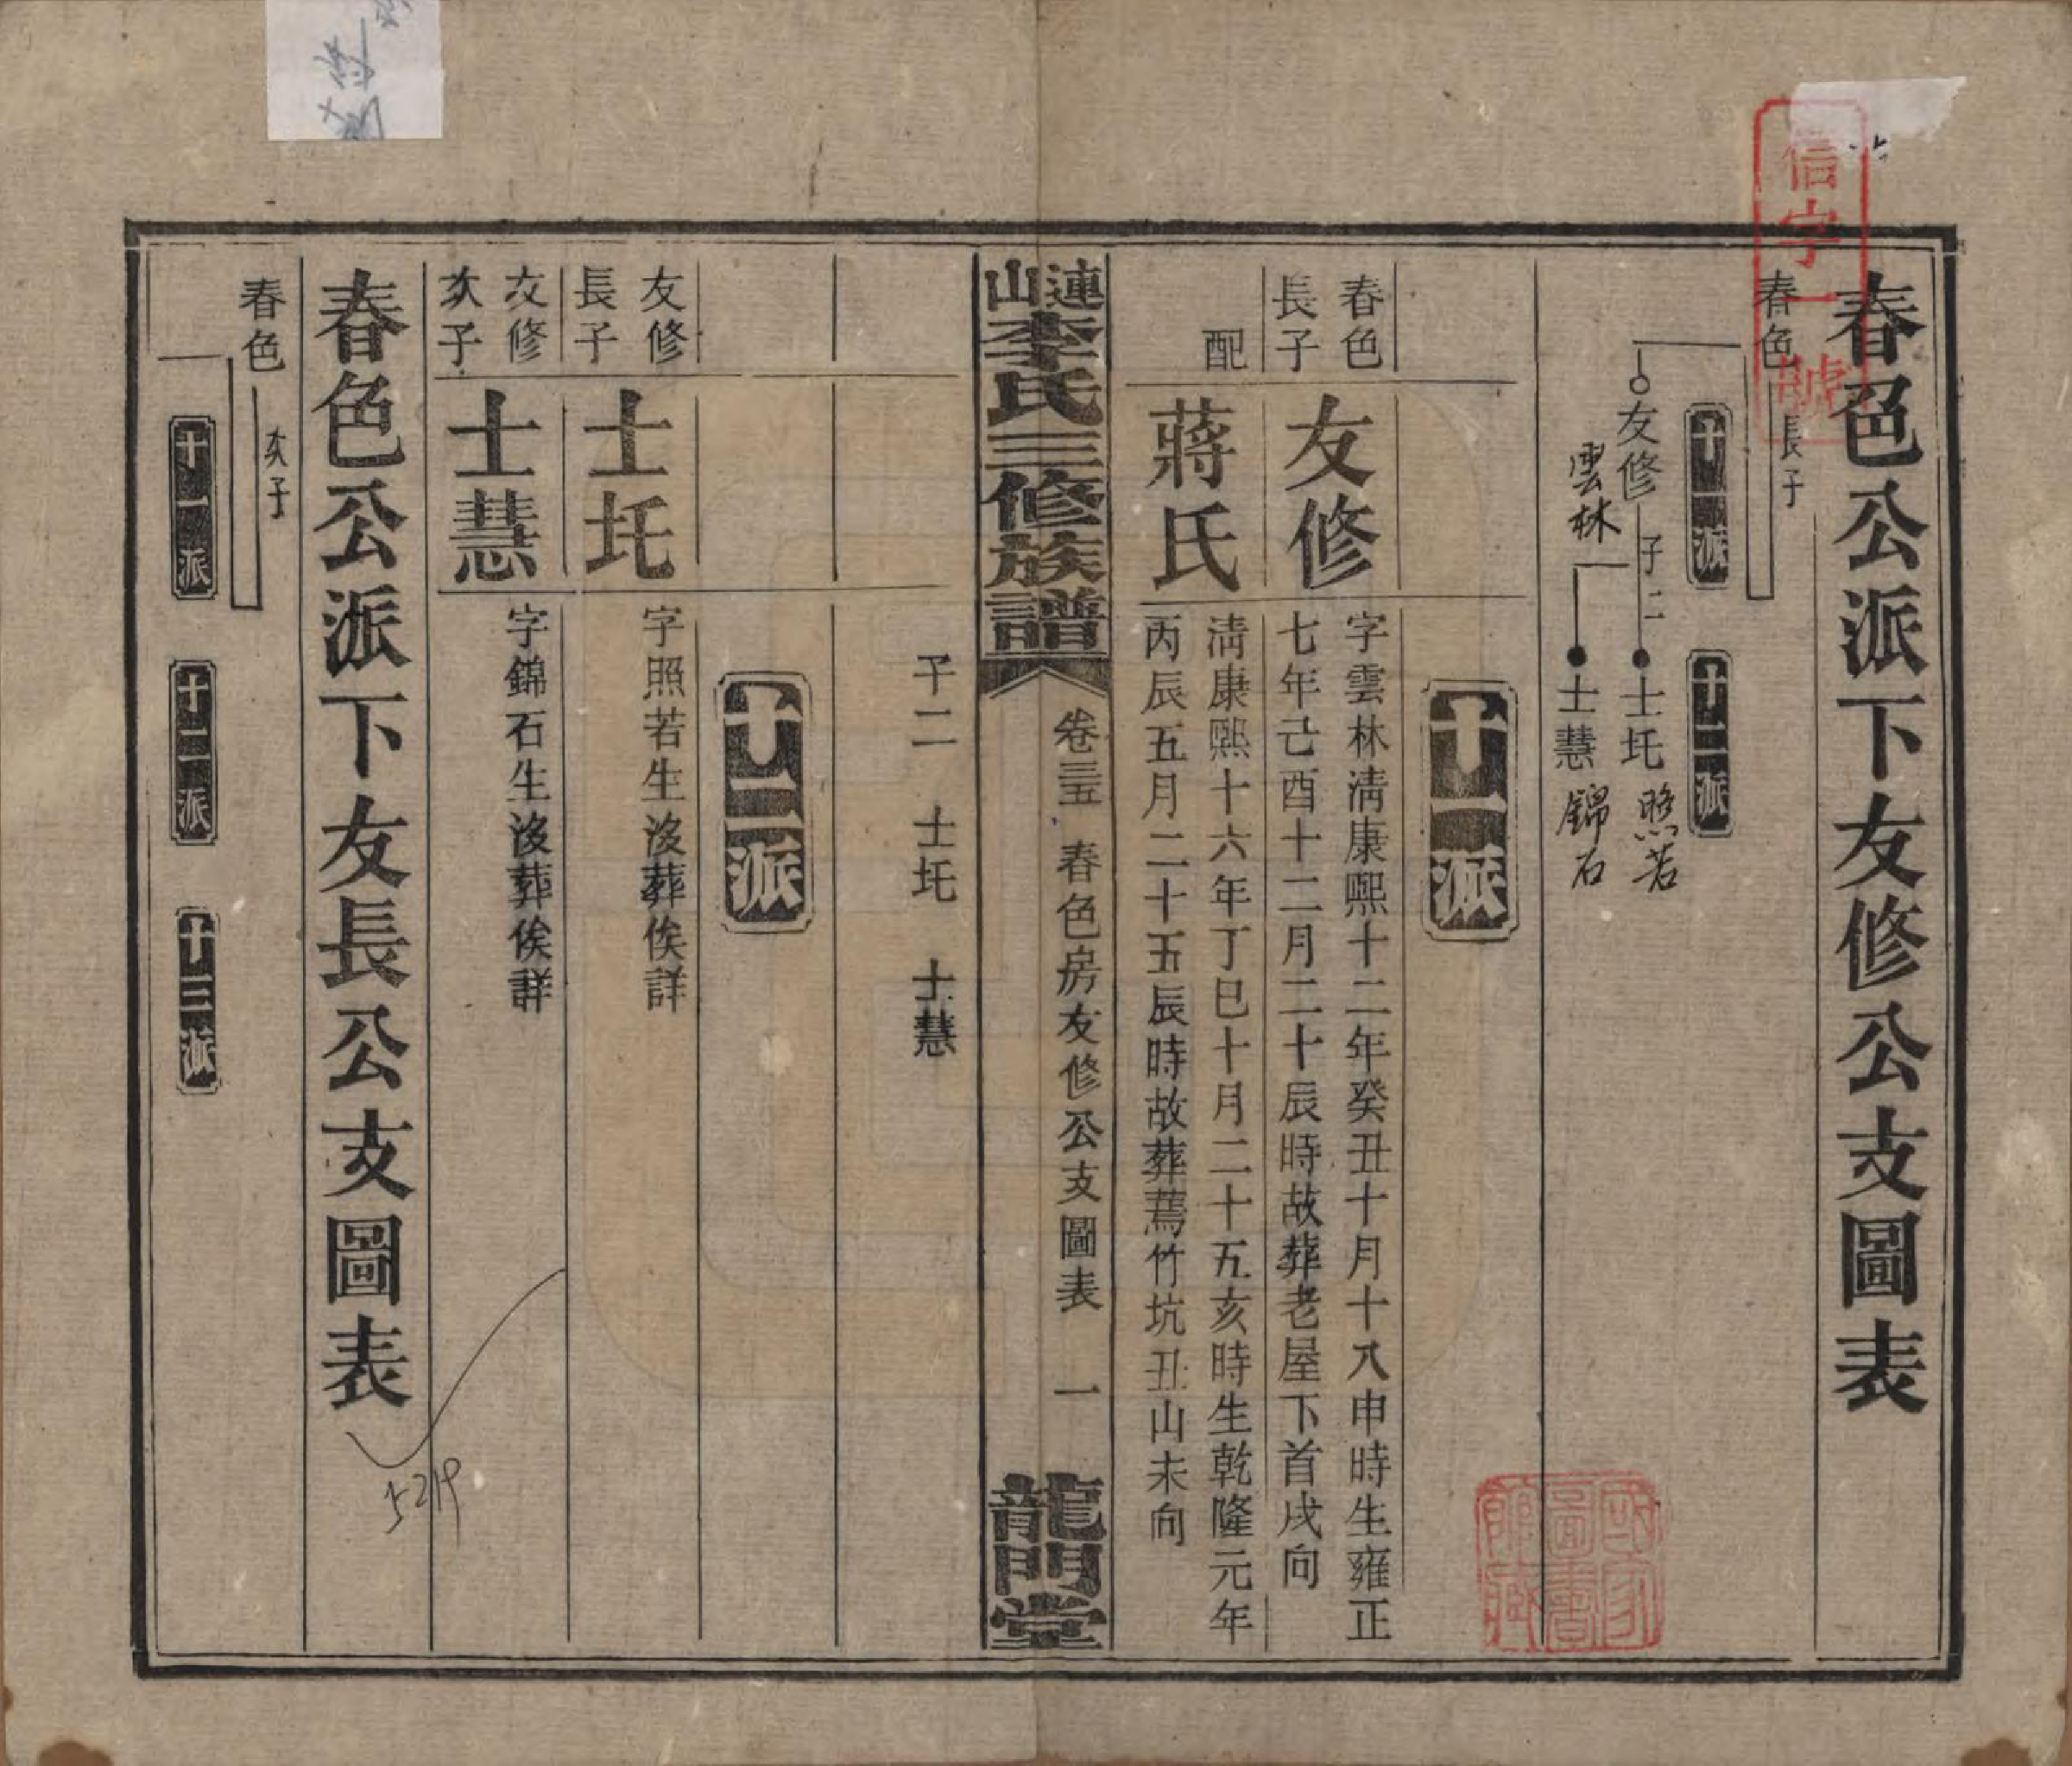 春色公派下友修公支圖表
信字一號
春色
長子
十一派
十二派
友修
雲林
子二
士圫
照若
士慧
錦石
國家圖書館藏
十一派
春色
長子
友修
字雲林清康熙十二年癸丑十月十八申時生雍正
七年己酉十二月二十辰時故葬老屋下首戌向
配
蔣氏
淸康熙十六年丁巳十月二十五亥時生乾隆元年
丙辰五月二十五辰時故葬蔫竹坑丑山未向
漣山李氏三修族譜
卷三五
春色房友修公支圖表
一
龍門堂
子二 士圫 士慧
十二派
友修
長子
士圫
字照若生沒葬俟詳
友修
次子
士慧
字錦石生沒葬俟詳
5219
春色公派下友長公支圖表
春色
次子
十一派
十二派
十三派